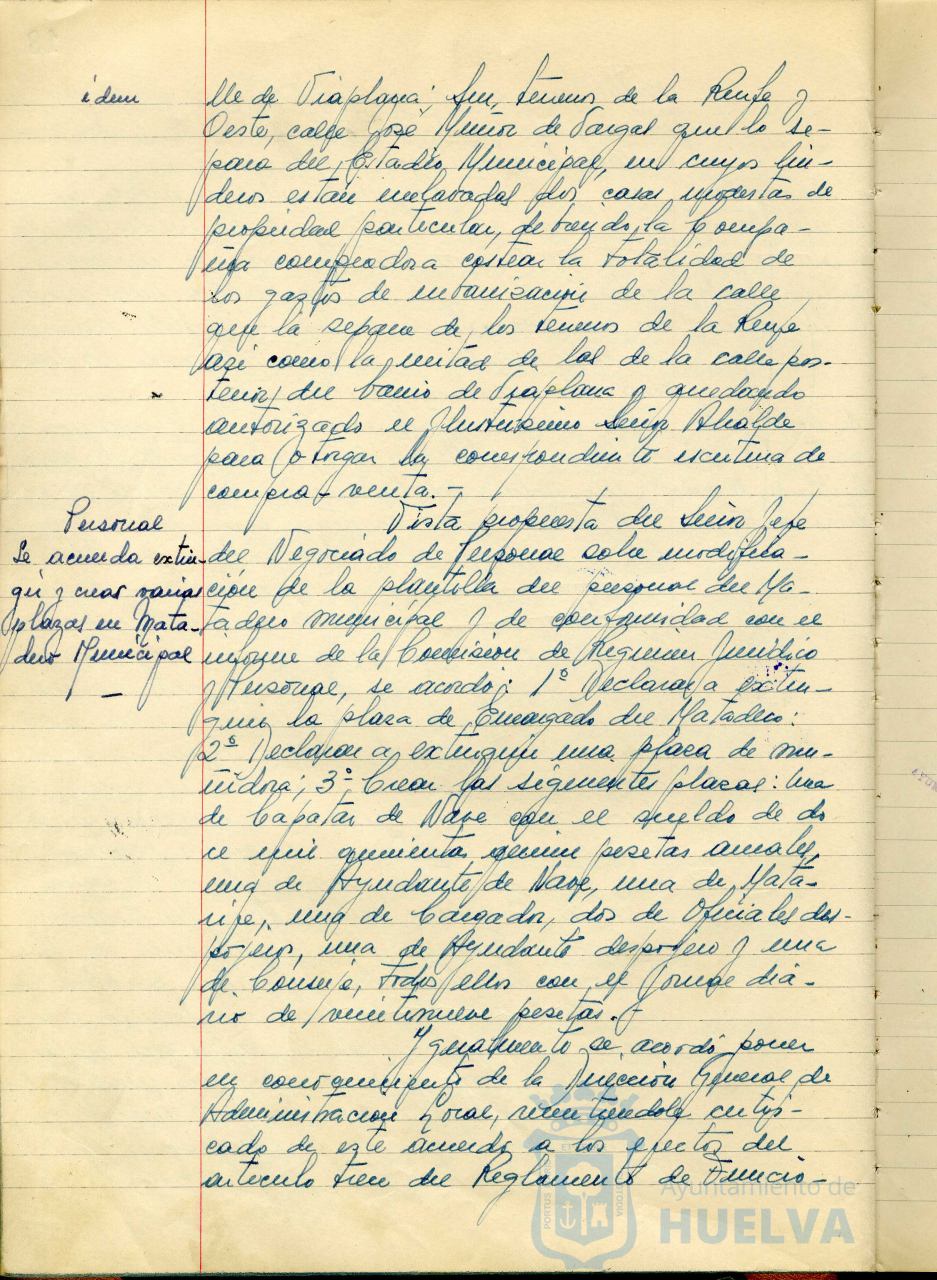 idem
lle de Viaplana; Sur, terrenos de la Renfe y
Oeste, calle José Muñoz de Vargas que lo se-
para del Estadio Municipal, en cuyos lin-
deros están enclavadas dos casas modestas de
propiedad particular, debiendo la Compa-
ñia compradora costear la totalidad de
los gastos de urbanización de la calle
que la separa de los terrenos de la Renfe
asi como la mitad de los de la calle pos-
terior del barrio de Viaplana y quedando
autorizado el Ilustrisimo Señor Alcalde
para otorgar la correspondiente escritura de
compra-venta.-
Personal
Se acuerda extin-
guir y crear varias
plazas en Mata-
dero Municipal
Vista propuesta del Señor Jefe
del Negociado de Personal sobre modifica-
ción de la plantilla del personal del Ma-
tadero municipal y de conformidad con el
informe de la Comision de Regimen Juridico
y Personal, se acordó: 1º Declarar a extin-
guir la plaza de Encargado del Matadero:
2º Declarar a extinguir una plaza de mu-
ñidora; 3º, Crear las siguientes plazas: Una
de Capataz de Nave con el sueldo de do
ce mil quinientas pesetas anuales,
una de Ayudante de Nave, una de Mata-
rife, una de Cargador, dos de Oficiales des-
pojeros, una de Ayudante despojero y una
de Conserje, todos ellos con el jornal dia-
rio de veintinueve pesetas.-
Igualmente se acordó poner
en conocimiento de la Dirección General de
Administracion Local, remitiendole certifi-
cado de este acuerdo a los efectos del
articulo trece del Reglamento de Funcio-
Ayuntamiento de
HUELVA